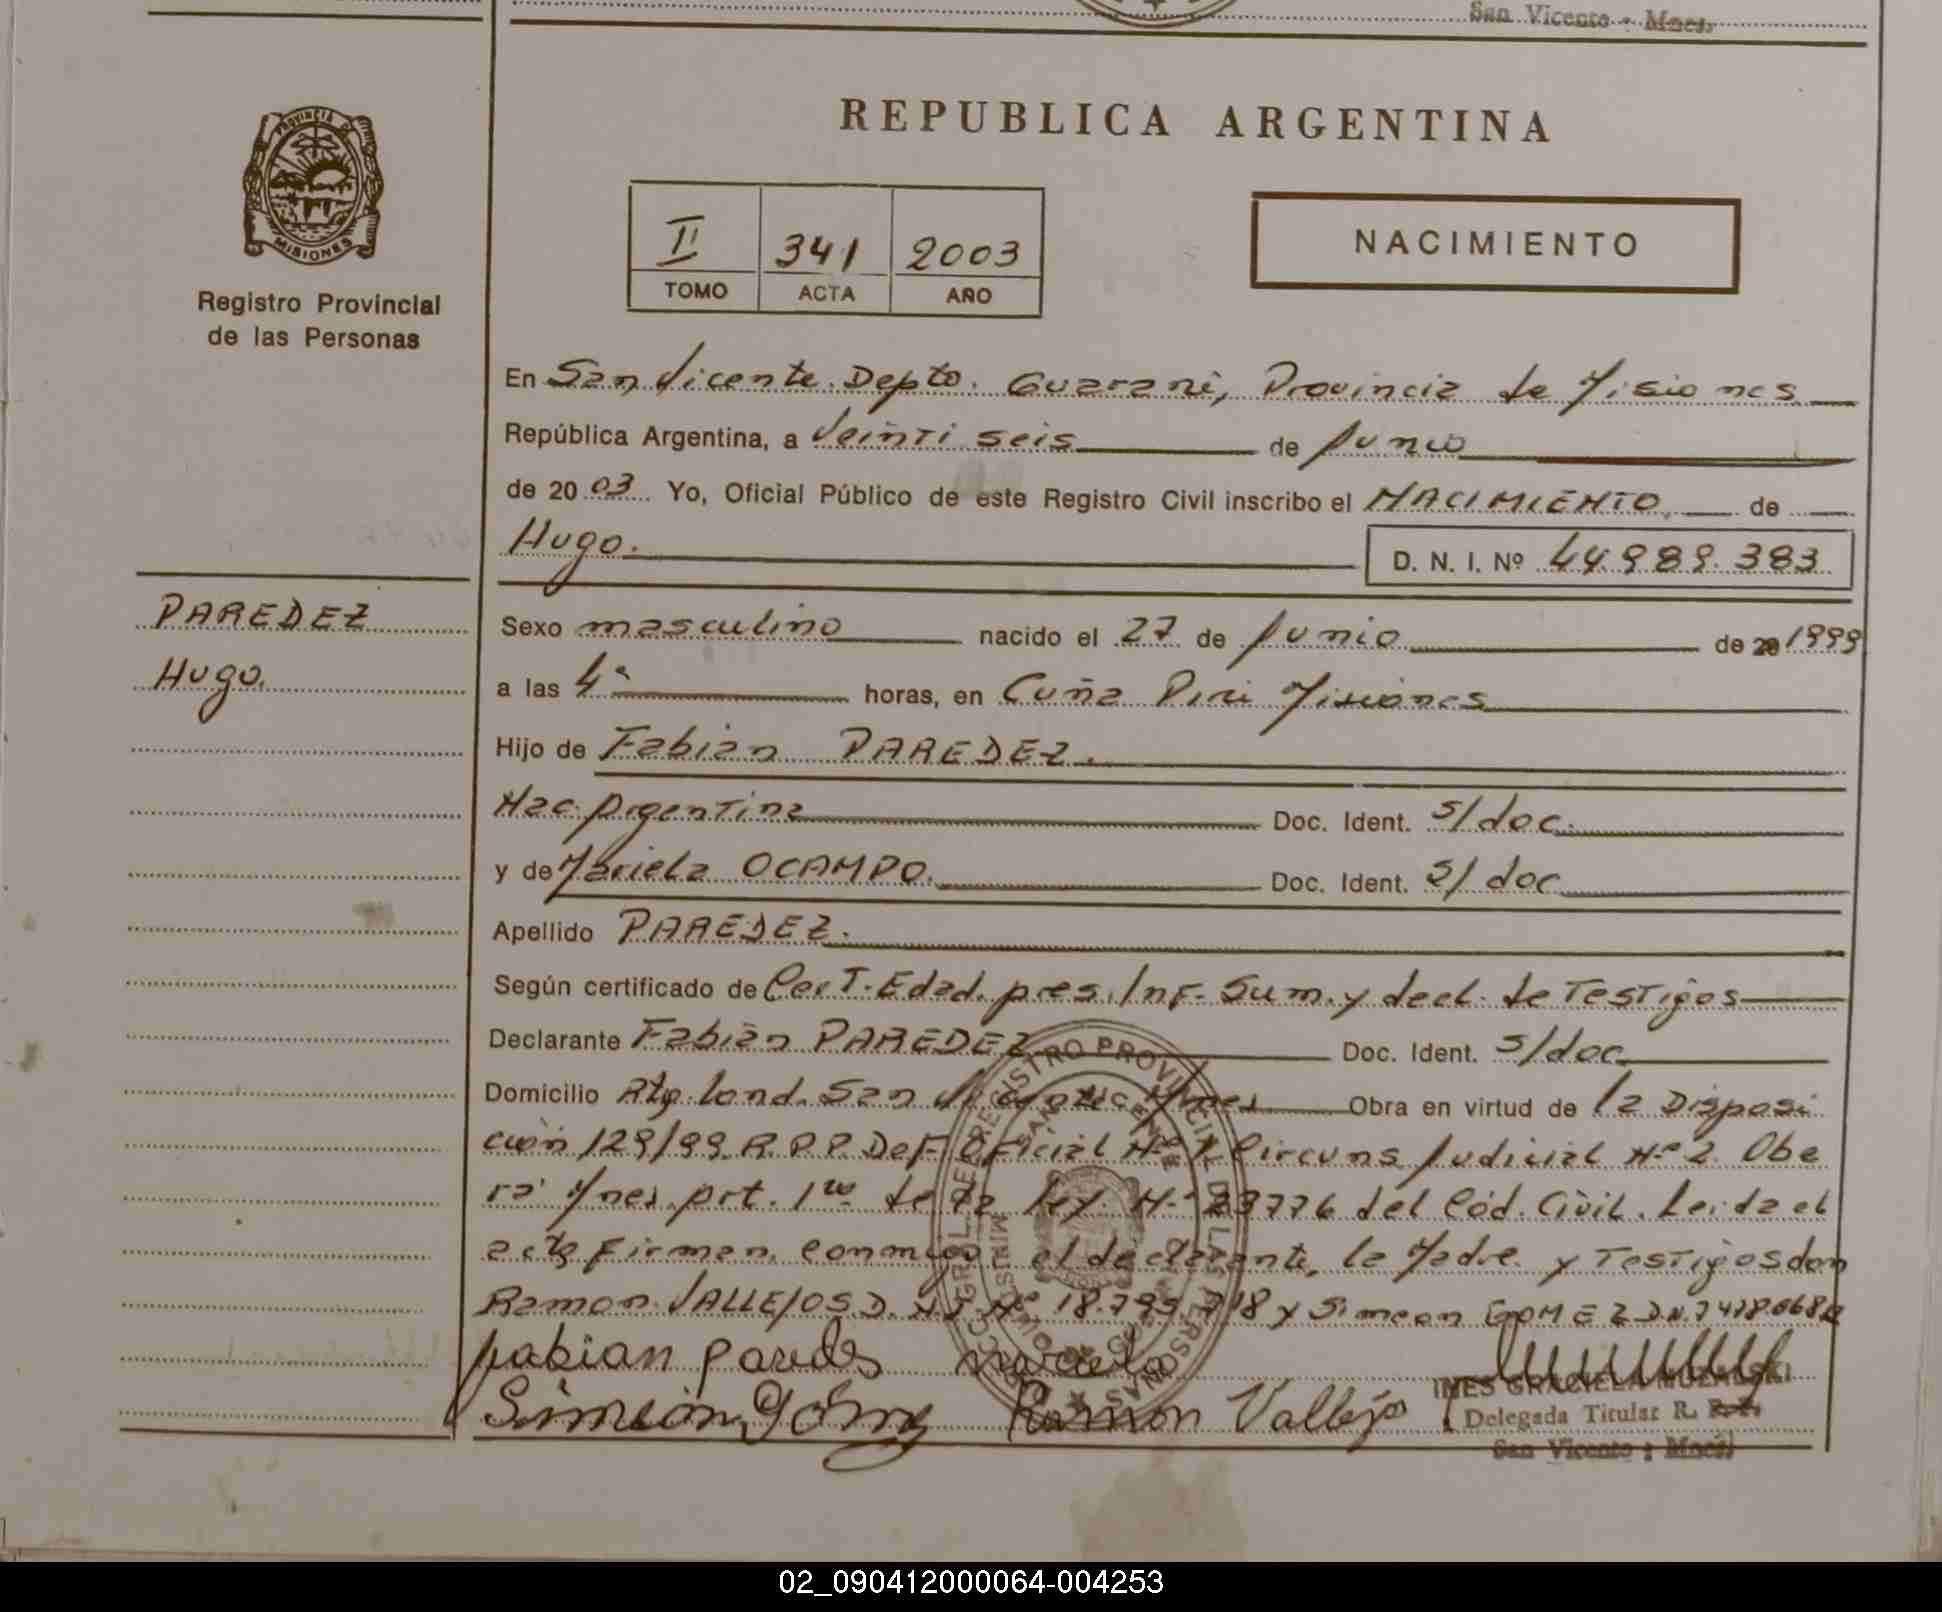 San Vicente - Mnes.
PROVINCIA DE
MISIONES
Registro Provincial
de las Personas
REPUBLICA ARGENTINA
II 341 2003
TOMO ACTA AÑO
NACIMIENTO
En San Vicente. Depto. Guarani, Provincia de Misiones
República Argentina, a Veinti seis de Junio
de 2003 Yo, Oficial Público de este Registro Civil inscribo el NACIMIENTO, de
Hugo. D. N. I. Nº 44.989.383
PAREDEZ
Hugo.
Sexo masculino nacido el 27 de Junio de 20 1999
a las 4ª horas, en Cuña Piri Misiones
Hijo de Fabian PAREDEZ.
Nac. Argentina Doc. Ident. s/doc.
y de Mariela OCAMPO. Doc. Ident. s/doc
Apellido PAREDEZ.
Según certificado de Cert. Edad. pres. Inf. Sum. y decl. de Testigos
Declarante Fabián PAREDEZ Doc. Ident. s/doc
Domicilio San Mnes Obra en virtud de la Disposi
ción 129/99. R.P.P. Def. Oficial Nº 1 Circuns Judicial Nº 2. Obe
ra' Mnes. prt. 1ro de la ley. Nº 23776 del Cód. Civil. Leida el
acta Firman. Conmigo el declarante, la Madre y Testigos don
Ramon VALLEJOS D.N.I Nº 18.799.718 y Simeon GOMEZ D.N.
fabian paredes mariela
Simeón Gómez Ramon Vallejo
INES GRACIELA
Delegada Titular R. P. P.
San Vicente - Mnes.
REGISTRO PROVINCIAL DE LAS PERSONAS
02_090412000064-004253